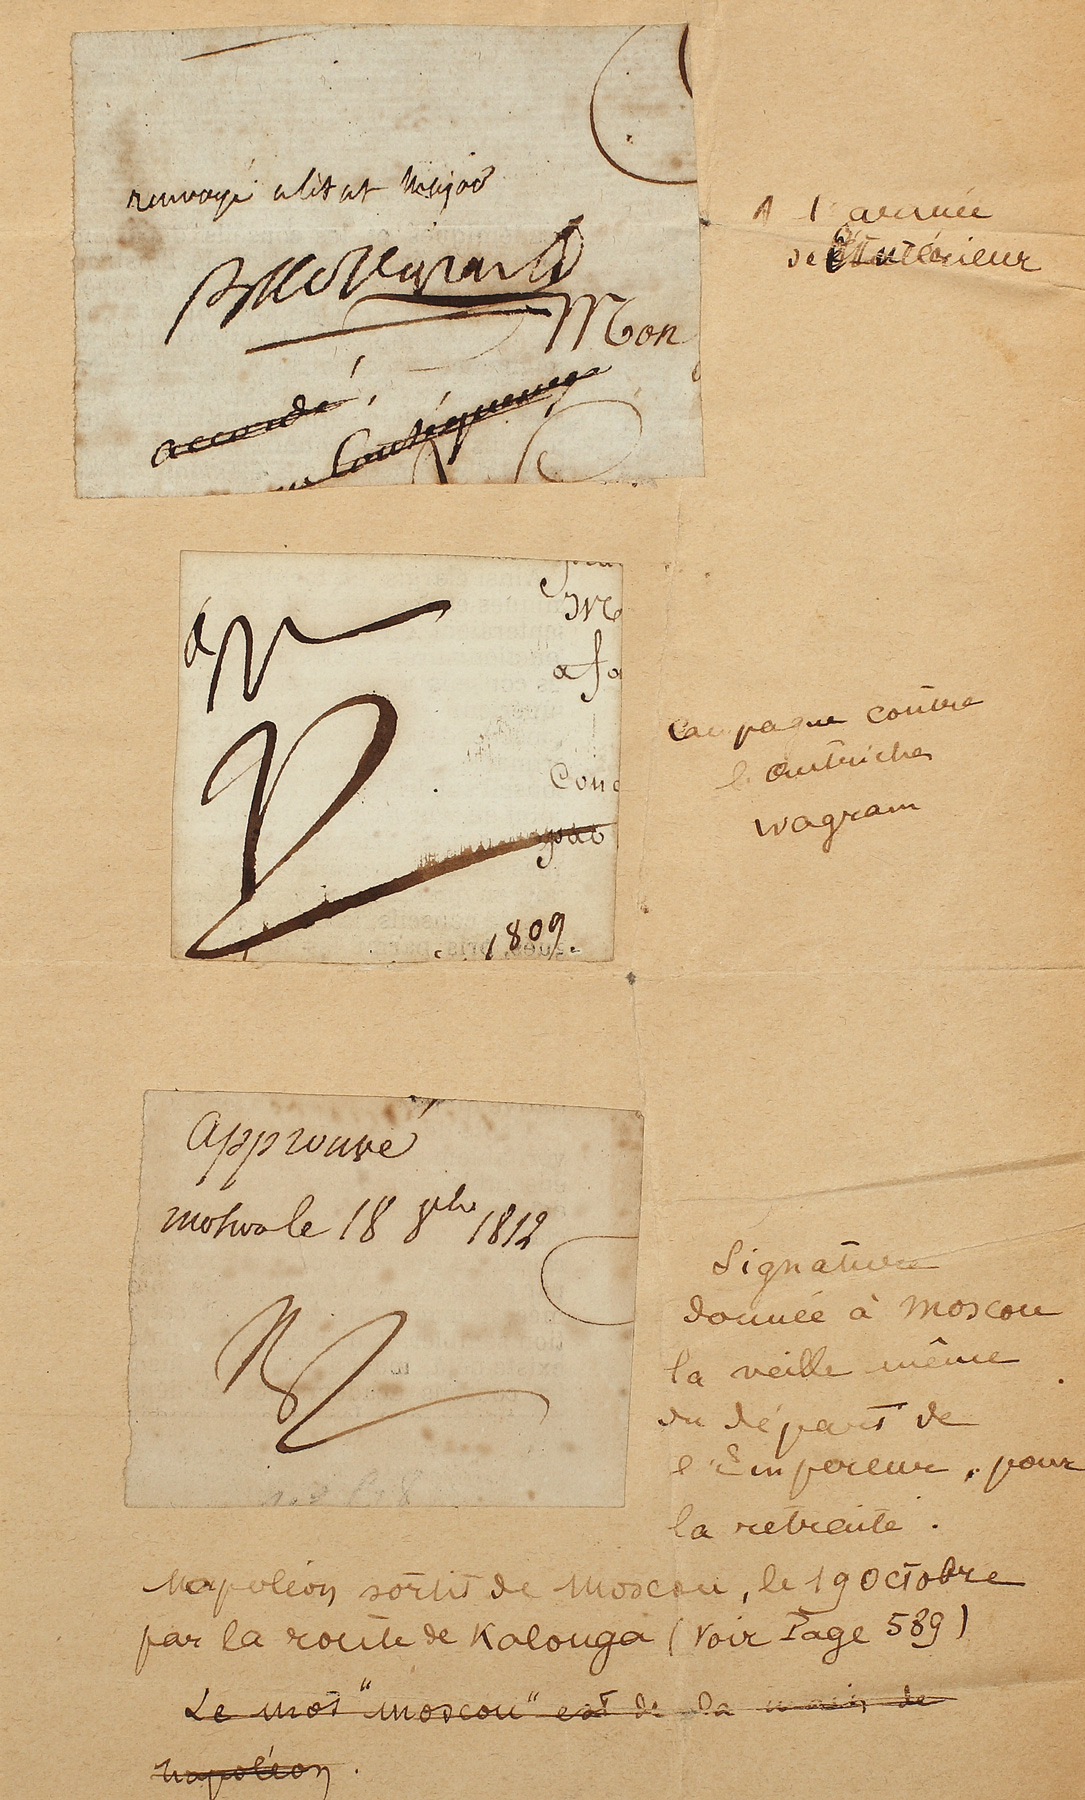 renvoyé a l'état major
Buonaparte
Mon
accordé
en conséquence
A l'armée
de l'Intérieur
ap
Me
a fa
Conc
par
1809.
Campagne contre
l'autriche
Wagram
Approuvé
moskva le 18 8bre 1812
Signature
donnée à Moscou
la veille même
du départ de
l'Empereur, pour
la retraite.
Napoléon sortit de Moscou, le 19 Octobre
par la route de Kalouga (Voir Page 589)
Le mot "Moscou" est de la main de
Napoléon.